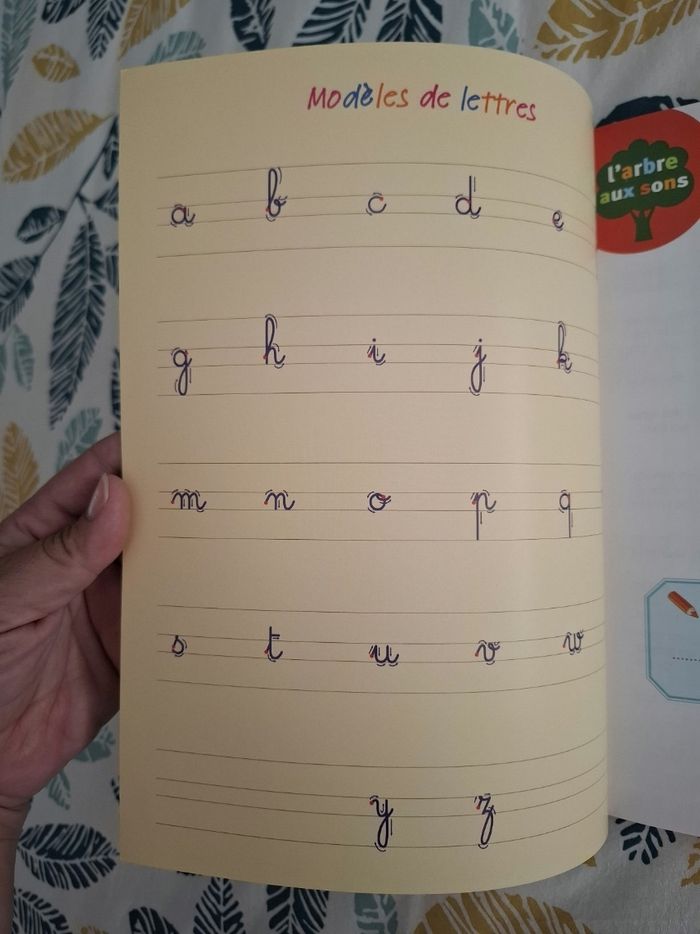 Modèles de lettres
l'arbre
aux sons
a b c d e
g h i j k
m n o p q
s t u v w
y z